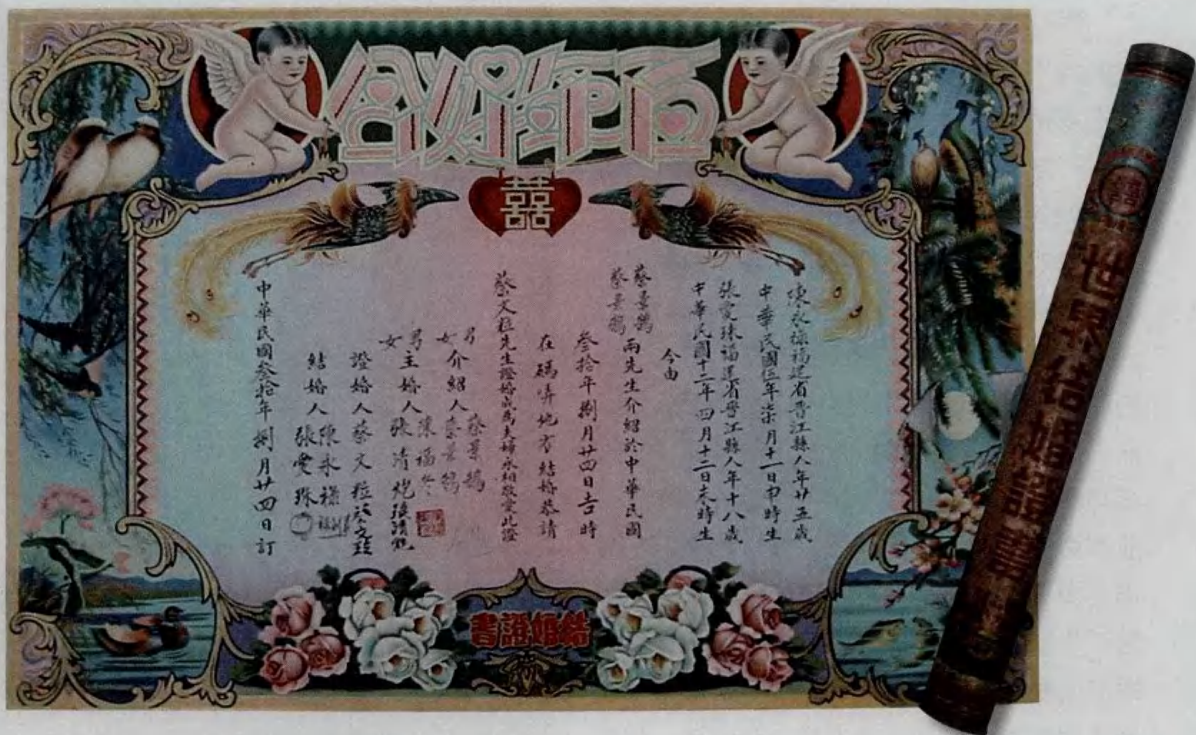 百年好合
囍
陳永祿福建省晉江縣人年廿五歲
中華民國伍年柒月十一日申時生
張愛珠福建省晉江縣人年十八歲
中華民國十二年四月十二日未時生
今由
蔡景鵠
蔡景鶴
兩先生介紹於中華民國
叁拾年捌月廿四日吉時
在碼弄地方結婚恭請
蔡文粒先生證婚成為夫婦永相敬愛此證
男
女
介紹人
蔡景鵠
蔡景鶴
男
女
主婚人
陳福冬
張清炮
證婚人蔡文粒
結婚人
陳永祿
張愛珠
中華民國叁拾年捌月廿四日訂
結婚證書
囍
世界結婚證書